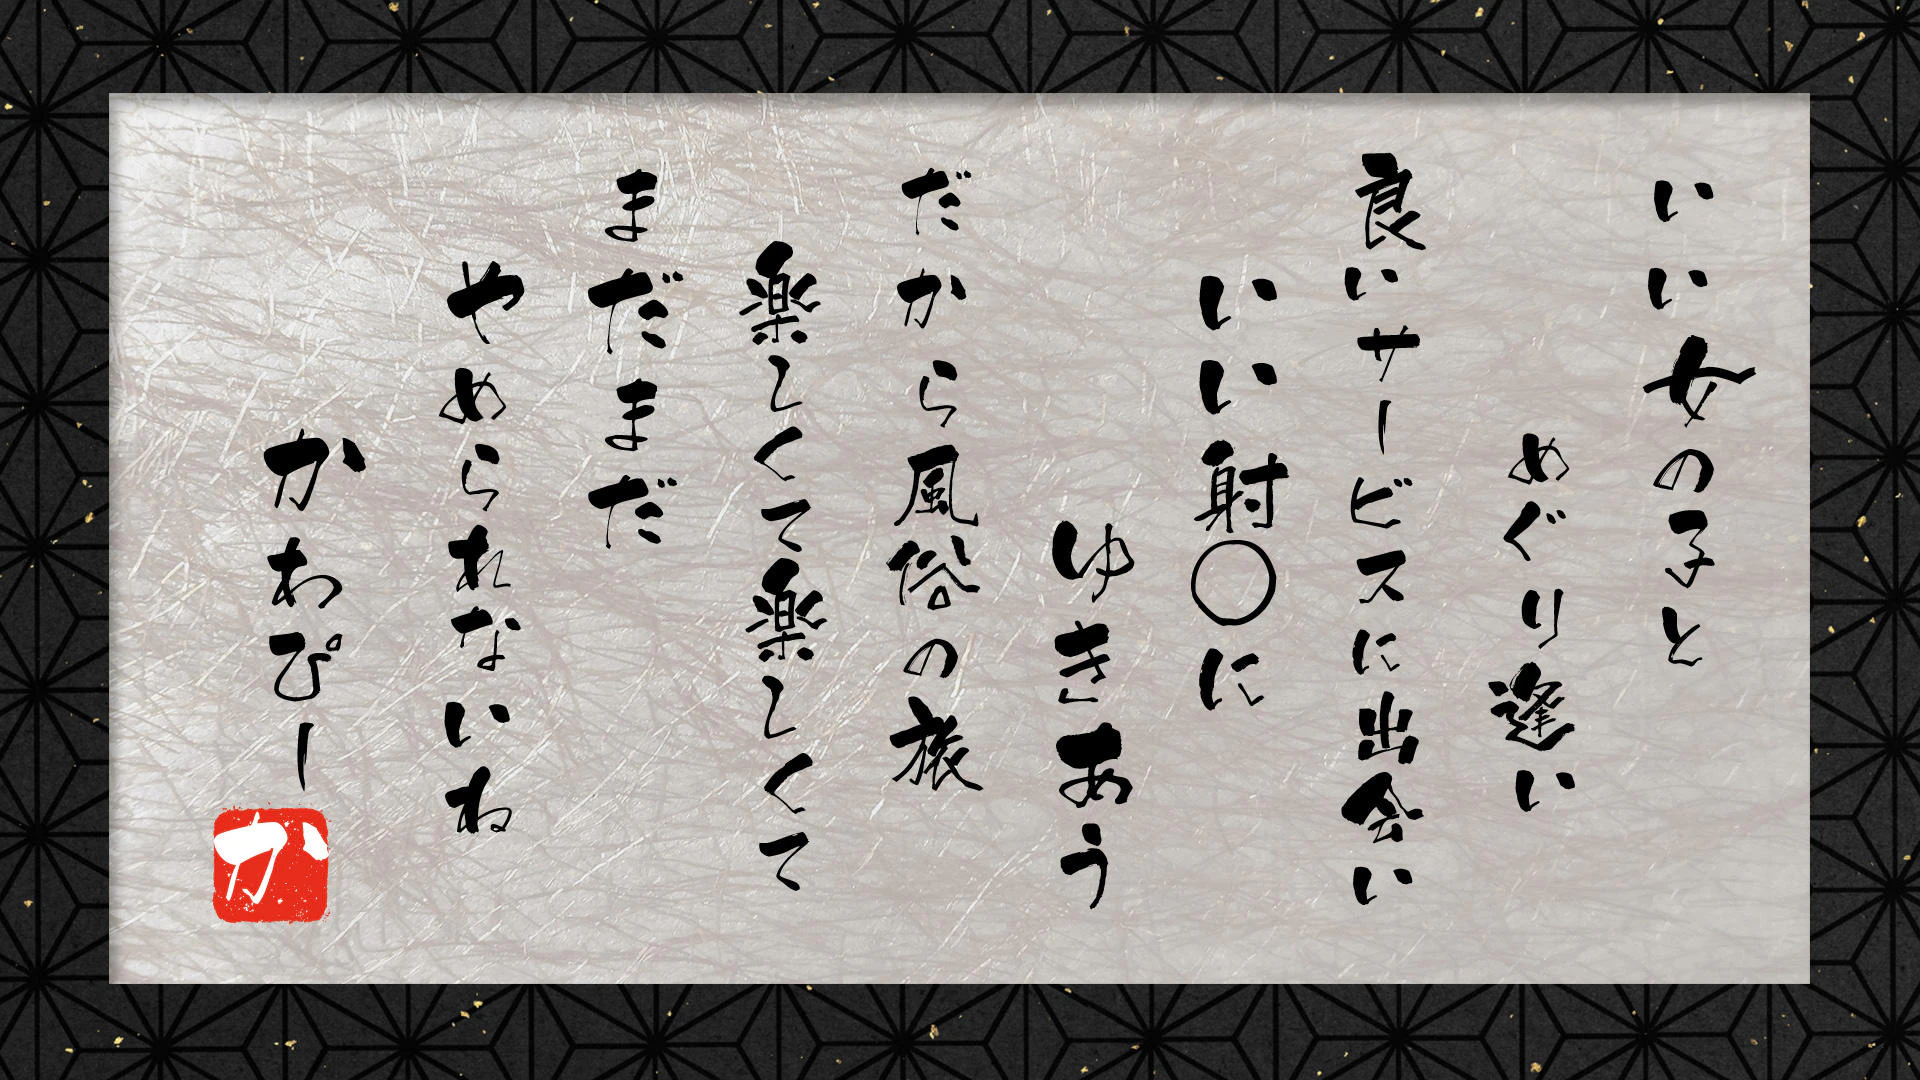 いい女の子と
めぐり逢い
良いサービスに出会い
いい射〇に
ゆきあう
だから風俗の旅
楽しくて楽しくて
まだまだ
やめられないね
かわぴー
か